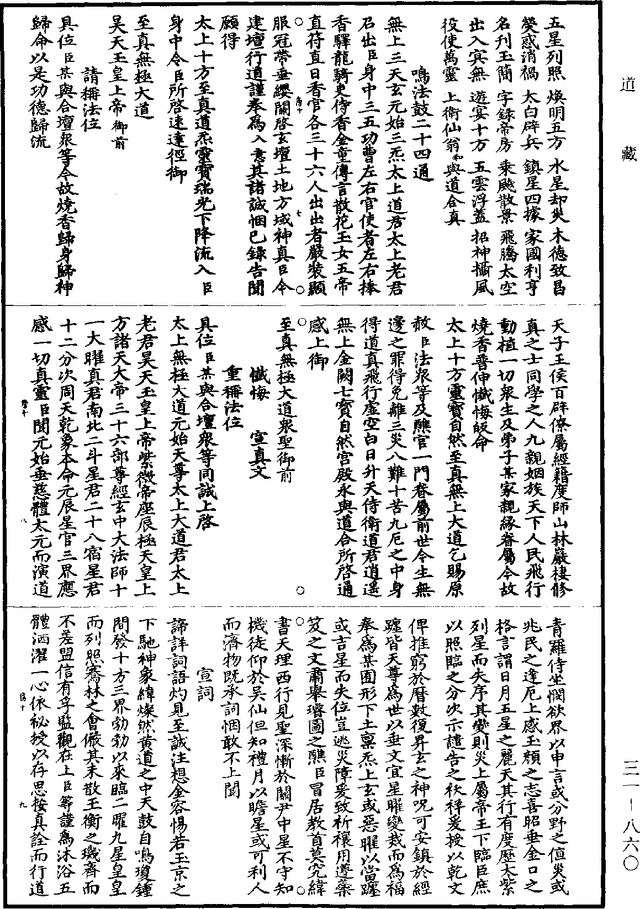 道藏
五星列照　煥明五方　水星却災　木德致昌
熒惑消禍　太白辟兵　鎮星四據　家國利亨
名刊玉簡　字錄帝房　乘飈散景　飛騰太空
出入冥無　遊宴十方　五雲浮蓋　招神攝風
役使萬靈　上衛仙翁和與道合真
鳴法鼓二十四通
無上三天玄元始三炁太上道君太上老君
召出臣身中三五功曹左右官使者左右捧
香驛龍騎吏侍香金童傳言散花玉女五帝
直符直日香官各三十六人出出者嚴裝顯
服冠帶垂纓關啓玄壇土地方域神真臣今
建壇行道謹奉爲入意其諸誠悃已錄告聞
願得
太上十方至真道炁靈寶瑞光下降流入臣
身中令臣所啓速達徑御
至真無極大道
昊天玉皇上帝御前
請稱法位
具位臣某與合壇衆等今故燒香歸身歸神
歸命以是功德歸流
天子王侯百辟僚屬經籍度師山林巖棲修
真之士同學之人九親姻族天下人民飛行
動植一切衆生及弟子某家親緣眷屬今故
燒香普伸懺悔皈命
太上十方靈寶自然至真無上大道乞賜原
赦臣法衆等及醮官一門眷屬前世今生無
邊之罪得免離三災八難十苦九厄之中身
得道真飛行虛空白日升天侍衛道君逍遙
無上金闕七寶自然宮殿永與道合所啓通
感上御
至真無極大道衆聖御前
懺悔　宣真文
重稱法位
具位臣某與合壇衆等同誠上啓
太上無極大道元始天尊太上大道君太上
老君昊天玉皇上帝紫微帝座辰極天皇上
方諸天大帝三十六部尊經玄中大法師十
一大曜真君南北二斗星君二十八宿星君
十二分次周天乾象本命元辰星官三界應
感一切真靈臣聞元始垂慈體太元而演道
青羅侍坐憫欲界以申言或分野之值災或
兆民之逢厄上感玉顏之志喜昭垂金口之
格言謂日月五星之麗天其行有度歷大紫
列星而失序其變則災上屬帝王下臨臣庶
以照臨之分次示譴告之秋祥爰授以乾文
俾推窮於曆數復昇玄之神呪可安鎮於經
躔皆天尊爲世以垂文宜星曜變裁而爲福
奉爲某圓形下土稟炁上玄或惡曜以當躔
或吉星而失位豈逃災障爰致祈禳用遵藥
笈之文肅舉璿圖之醮臣冒居教首莫究緯
書天理西行見聖深慚於關尹中星不守知
機徒仰於吳仙但知禮月以瞻星或可利人
而濟物既承詞悃敢不上聞
宣詞
諦詳詞語灼見至誠注想金容惕若玉京之
下馳神象緯燦然黃道之中天鼓自鳴瓊鍾
問發十方三界勃勃以來臨二曜九星皇皇
而列照騫林之會儼其未散玉衡之璣齊而
不差盟信有孚監觀在上臣等謹爲沐浴五
體洒濯一心依祕授以存思按真詮而行道
三一—八六〇